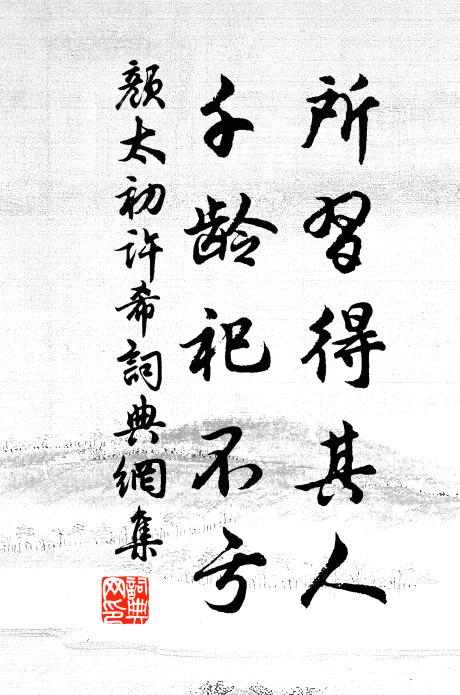 所習得其人
千龄祀不亏
顏太初許希詞典網集
詞典网印